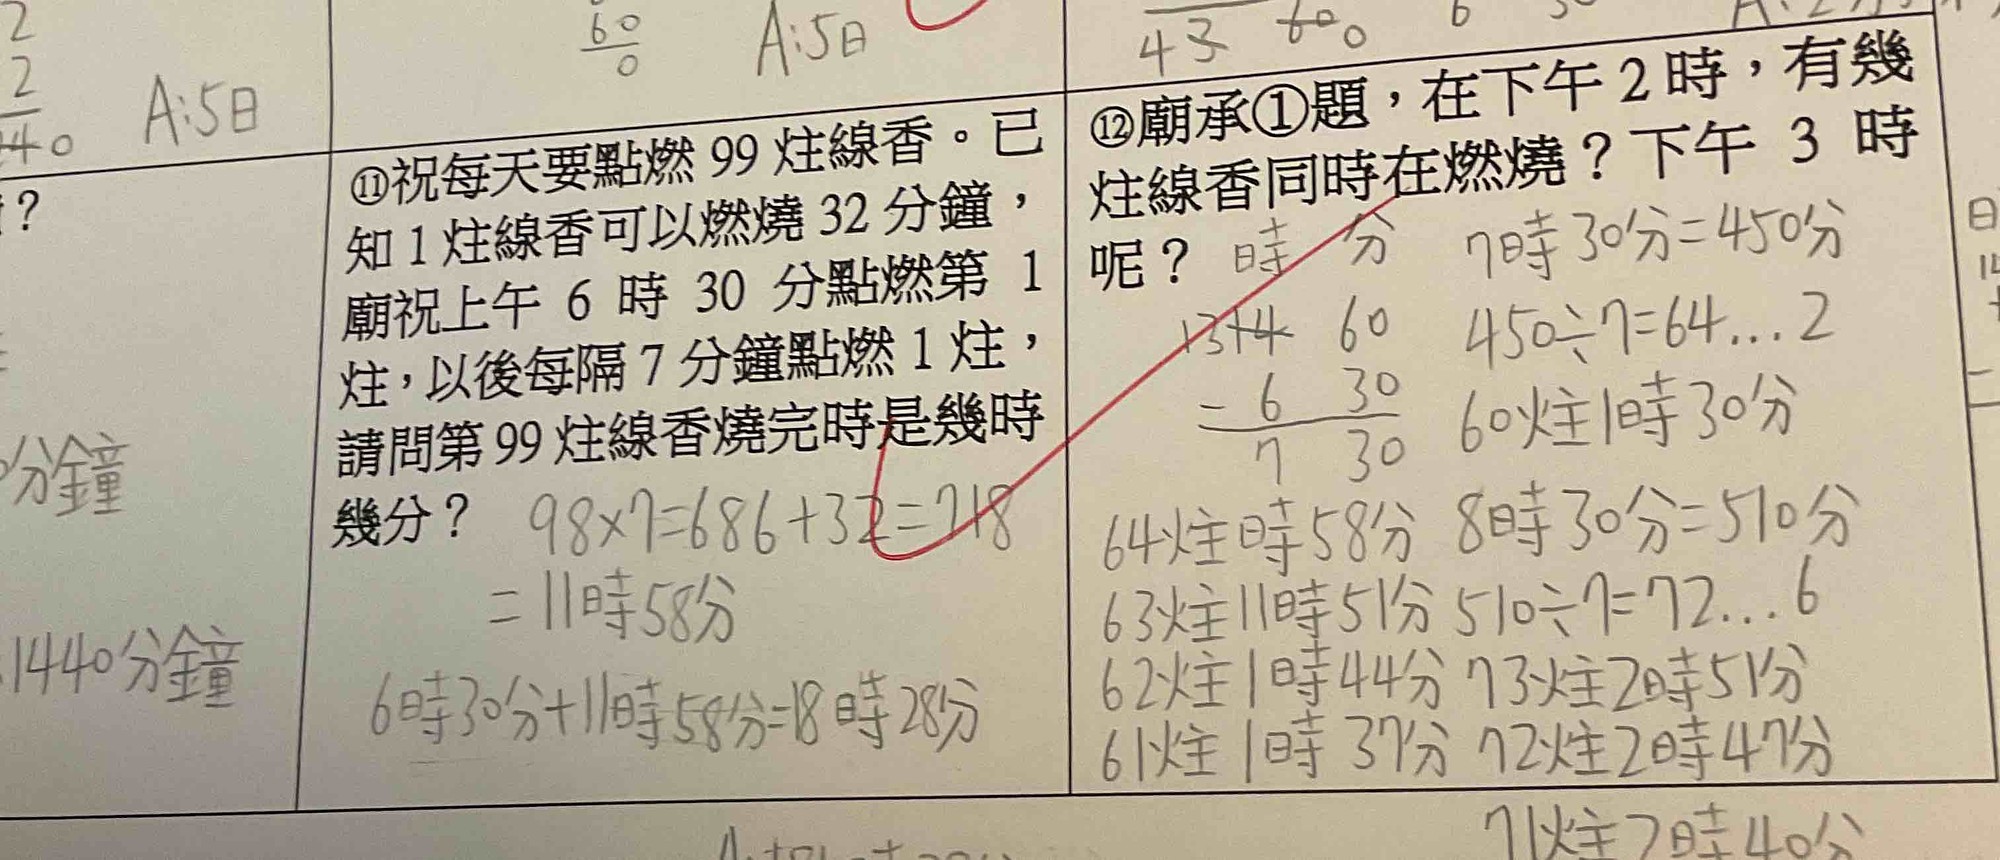 2
2
40
A:5日
?
分鐘
1440分鐘
60
0
A:5日
⑪祝每天要點燃 99 炷線香。已
知 1 炷線香可以燃燒 32 分鐘，
廟祝上午 6 時 30 分點燃第 1
炷，以後每隔 7 分鐘點燃 1 炷，
請問第 99 炷線香燒完時是幾時
幾分？
98×7=686+32=718
=11時58分
6時30分+11時58分=18時28分
43 60 0
6
⑫廟承①題，在下午 2 時，有幾
炷線香同時在燃燒？下午 3 時
呢？
時 分
13 14 60
- 6 30
7 30
64炷時58分
63炷11時51分
62炷1時44分
61炷1時37分
7時30分=450分
450÷7=64...2
60炷1時30分
8時30分=510分
510÷7=72...6
73炷2時51分
72炷2時47分
71炷2時40分
日